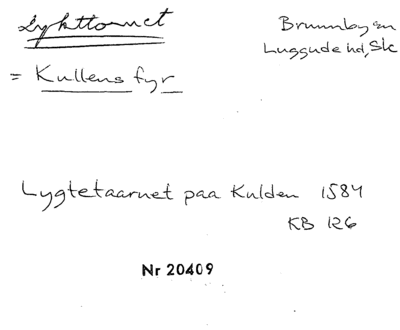 Lykttornet
Brunnby sn
Luggude hd, Sk
= Kullens fyr
Lygtetaarnet paa Kulden 1584
KB 126
Nr 20409